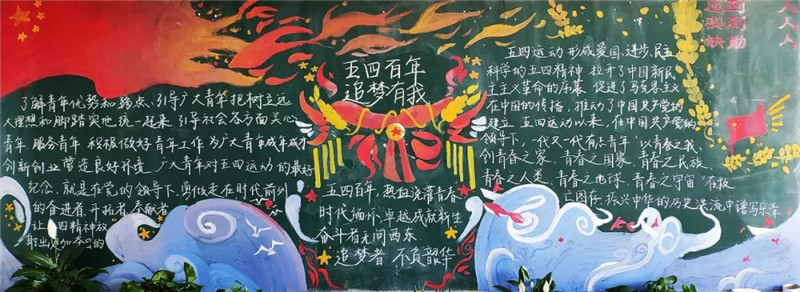 了解青年优势和弱点、引导广大青年把树立远
大理想和脚踏实地统一起来,引导社会各方面关心
青年 服务青年 积极做好青年工作 为广大青年成年成才
创新创业营造良好环境 广大青年对五四运动的最好
纪念,就是在党的领导下,勇做走在时代前列
的奋进者 开拓者 奉献者
让五四精神放
射出更加夺目的
五四百年
追梦有我
五四百年,热血浇灌青春
时代缅怀,卓越成就新生
奋斗者无问西东
追梦者 不负韶华
五四运动 形成爱国、进步、民主
科学的五四精神 拉开了中国新民
主主义革命的序幕 促进了马克思主义
在中国的传播,推动了中国共产党的
建立 五四运动以来,在中国共产党的
领导下,一代又一代有志青年"以青春之我、
创青春之家、青春之国家 青春之民族
青春之人类 青春之地球、青春之宇宙"在救
亡图存、振兴中华的历史洪流中谱写乐章